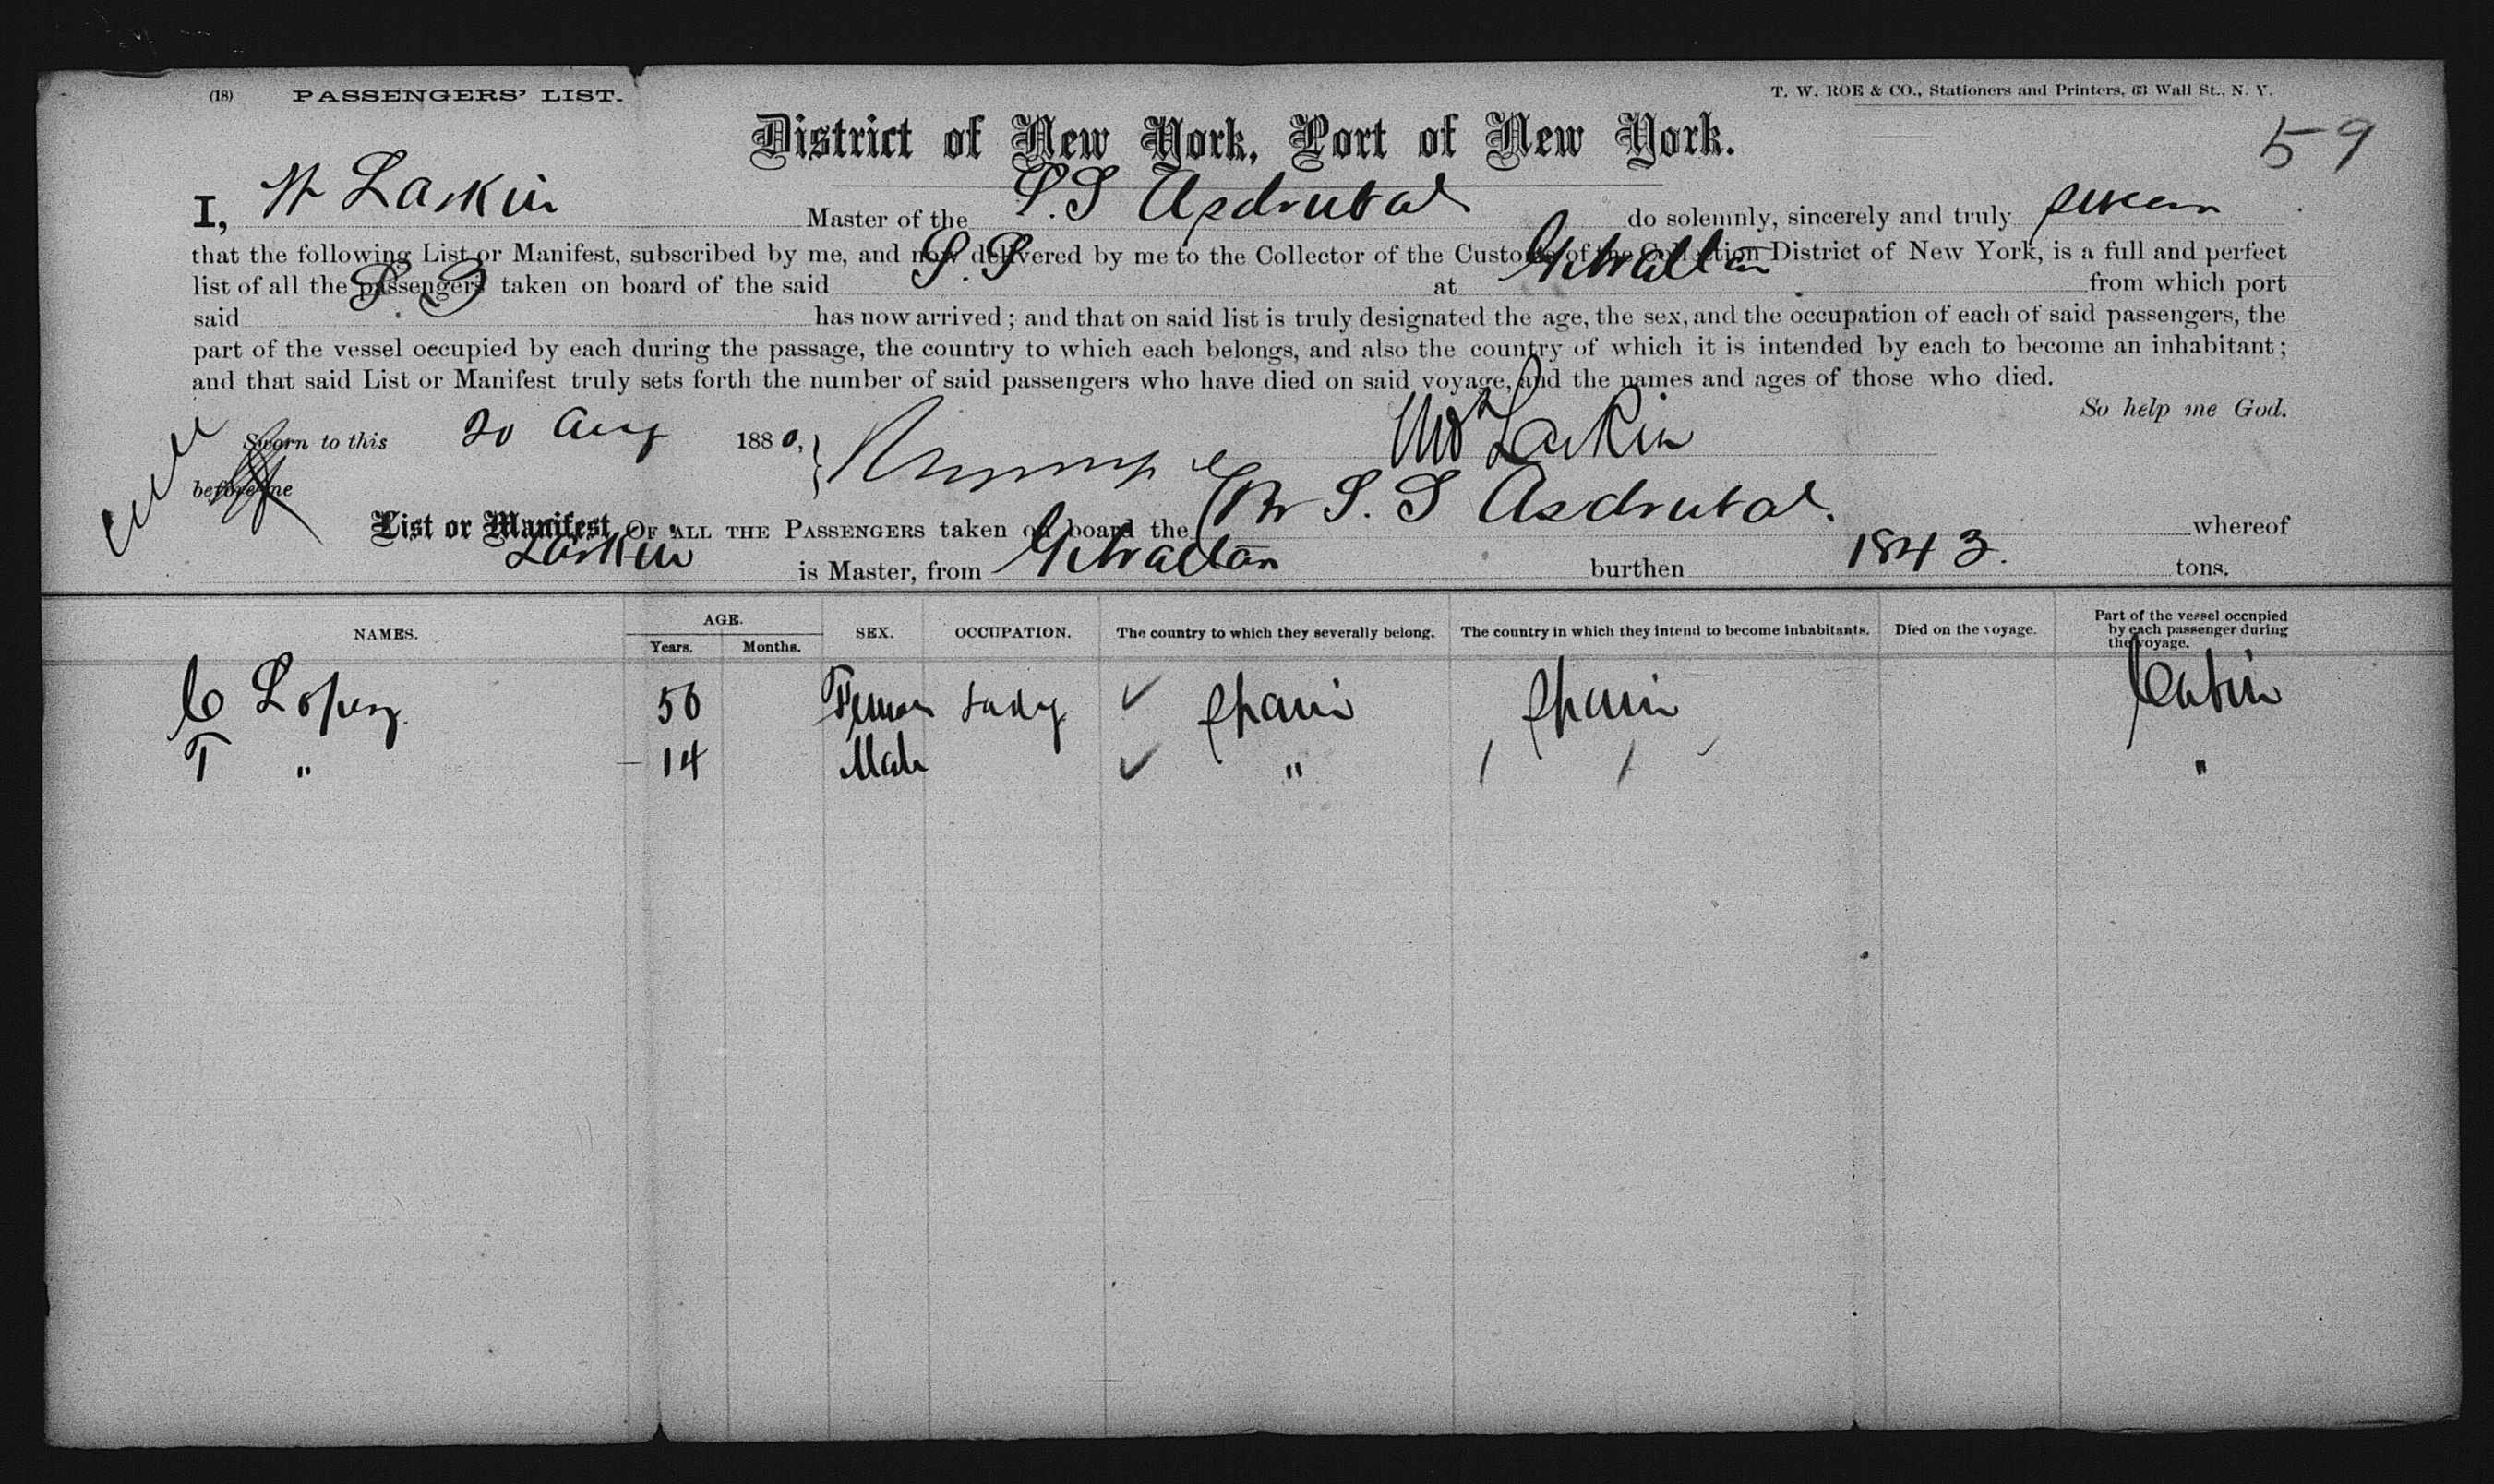 (18) PASSENGERS' LIST. T. W. ROE & CO., Stationers and Printers, 63 Wall St., N. Y.
59
District of New York, Port of New York.
I, W Larkin Master of the S.S Asdrubal do solemnly, sincerely and truly swear
that the following List or Manifest, subscribed by me, and now delivered by me to the Collector of the Customs of the Collection District of New York, is a full and perfect
list of all the passengers taken on board of the said S. S at Gibraltar from which port
said S. S has now arrived; and that on said list is truly designated the age, the sex, and the occupation of each of said passengers, the
part of the vessel occupied by each during the passage, the country to which each belongs, and also the country of which it is intended by each to become an inhabitant;
and that said List or Manifest truly sets forth the number of said passengers who have died on said voyage, and the names and ages of those who died.
So help me God.
Sworn to this 20 Aug 1880, Wm Larkin
before me
List or Manifest OF ALL THE PASSENGERS taken on board the Br S. S Asdrubal. whereof
Larkin is Master, from Gibraltar burthen 1843. tons.
NAMES. AGE. Years. Months. SEX. OCCUPATION. The country to which they severally belong. The country in which they intend to become inhabitants. Died on the voyage. Part of the vessel occupied by each passenger during the voyage.
C Lopez 50 Female Lady ✓ Spain Spain Cabin
T " 14 Male ✓ " / / "